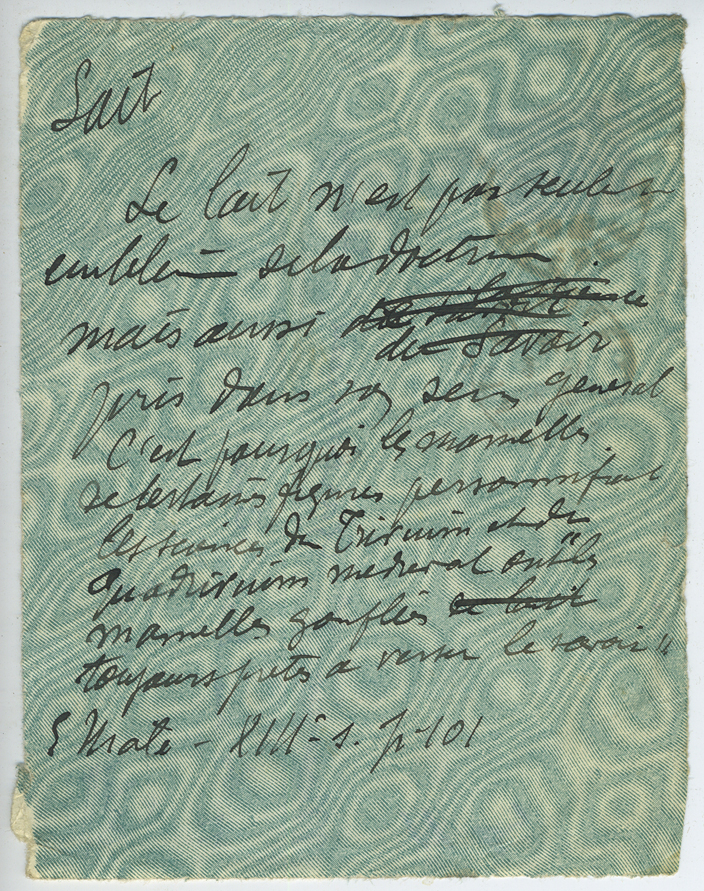 Lait
Le lait n'est pas seulem
emblème de la doctrine
mais aussi
du Savoir
pris dans son sens général
C'est pourquoi les mamelles
de certaines figures personnifiant
les sciences du Trivium et du
quadrivium medieval ont "les
mamelles gonflées de lait
toujours prêtes à verser le savoir"
E Male - XIIIe s. p. 101